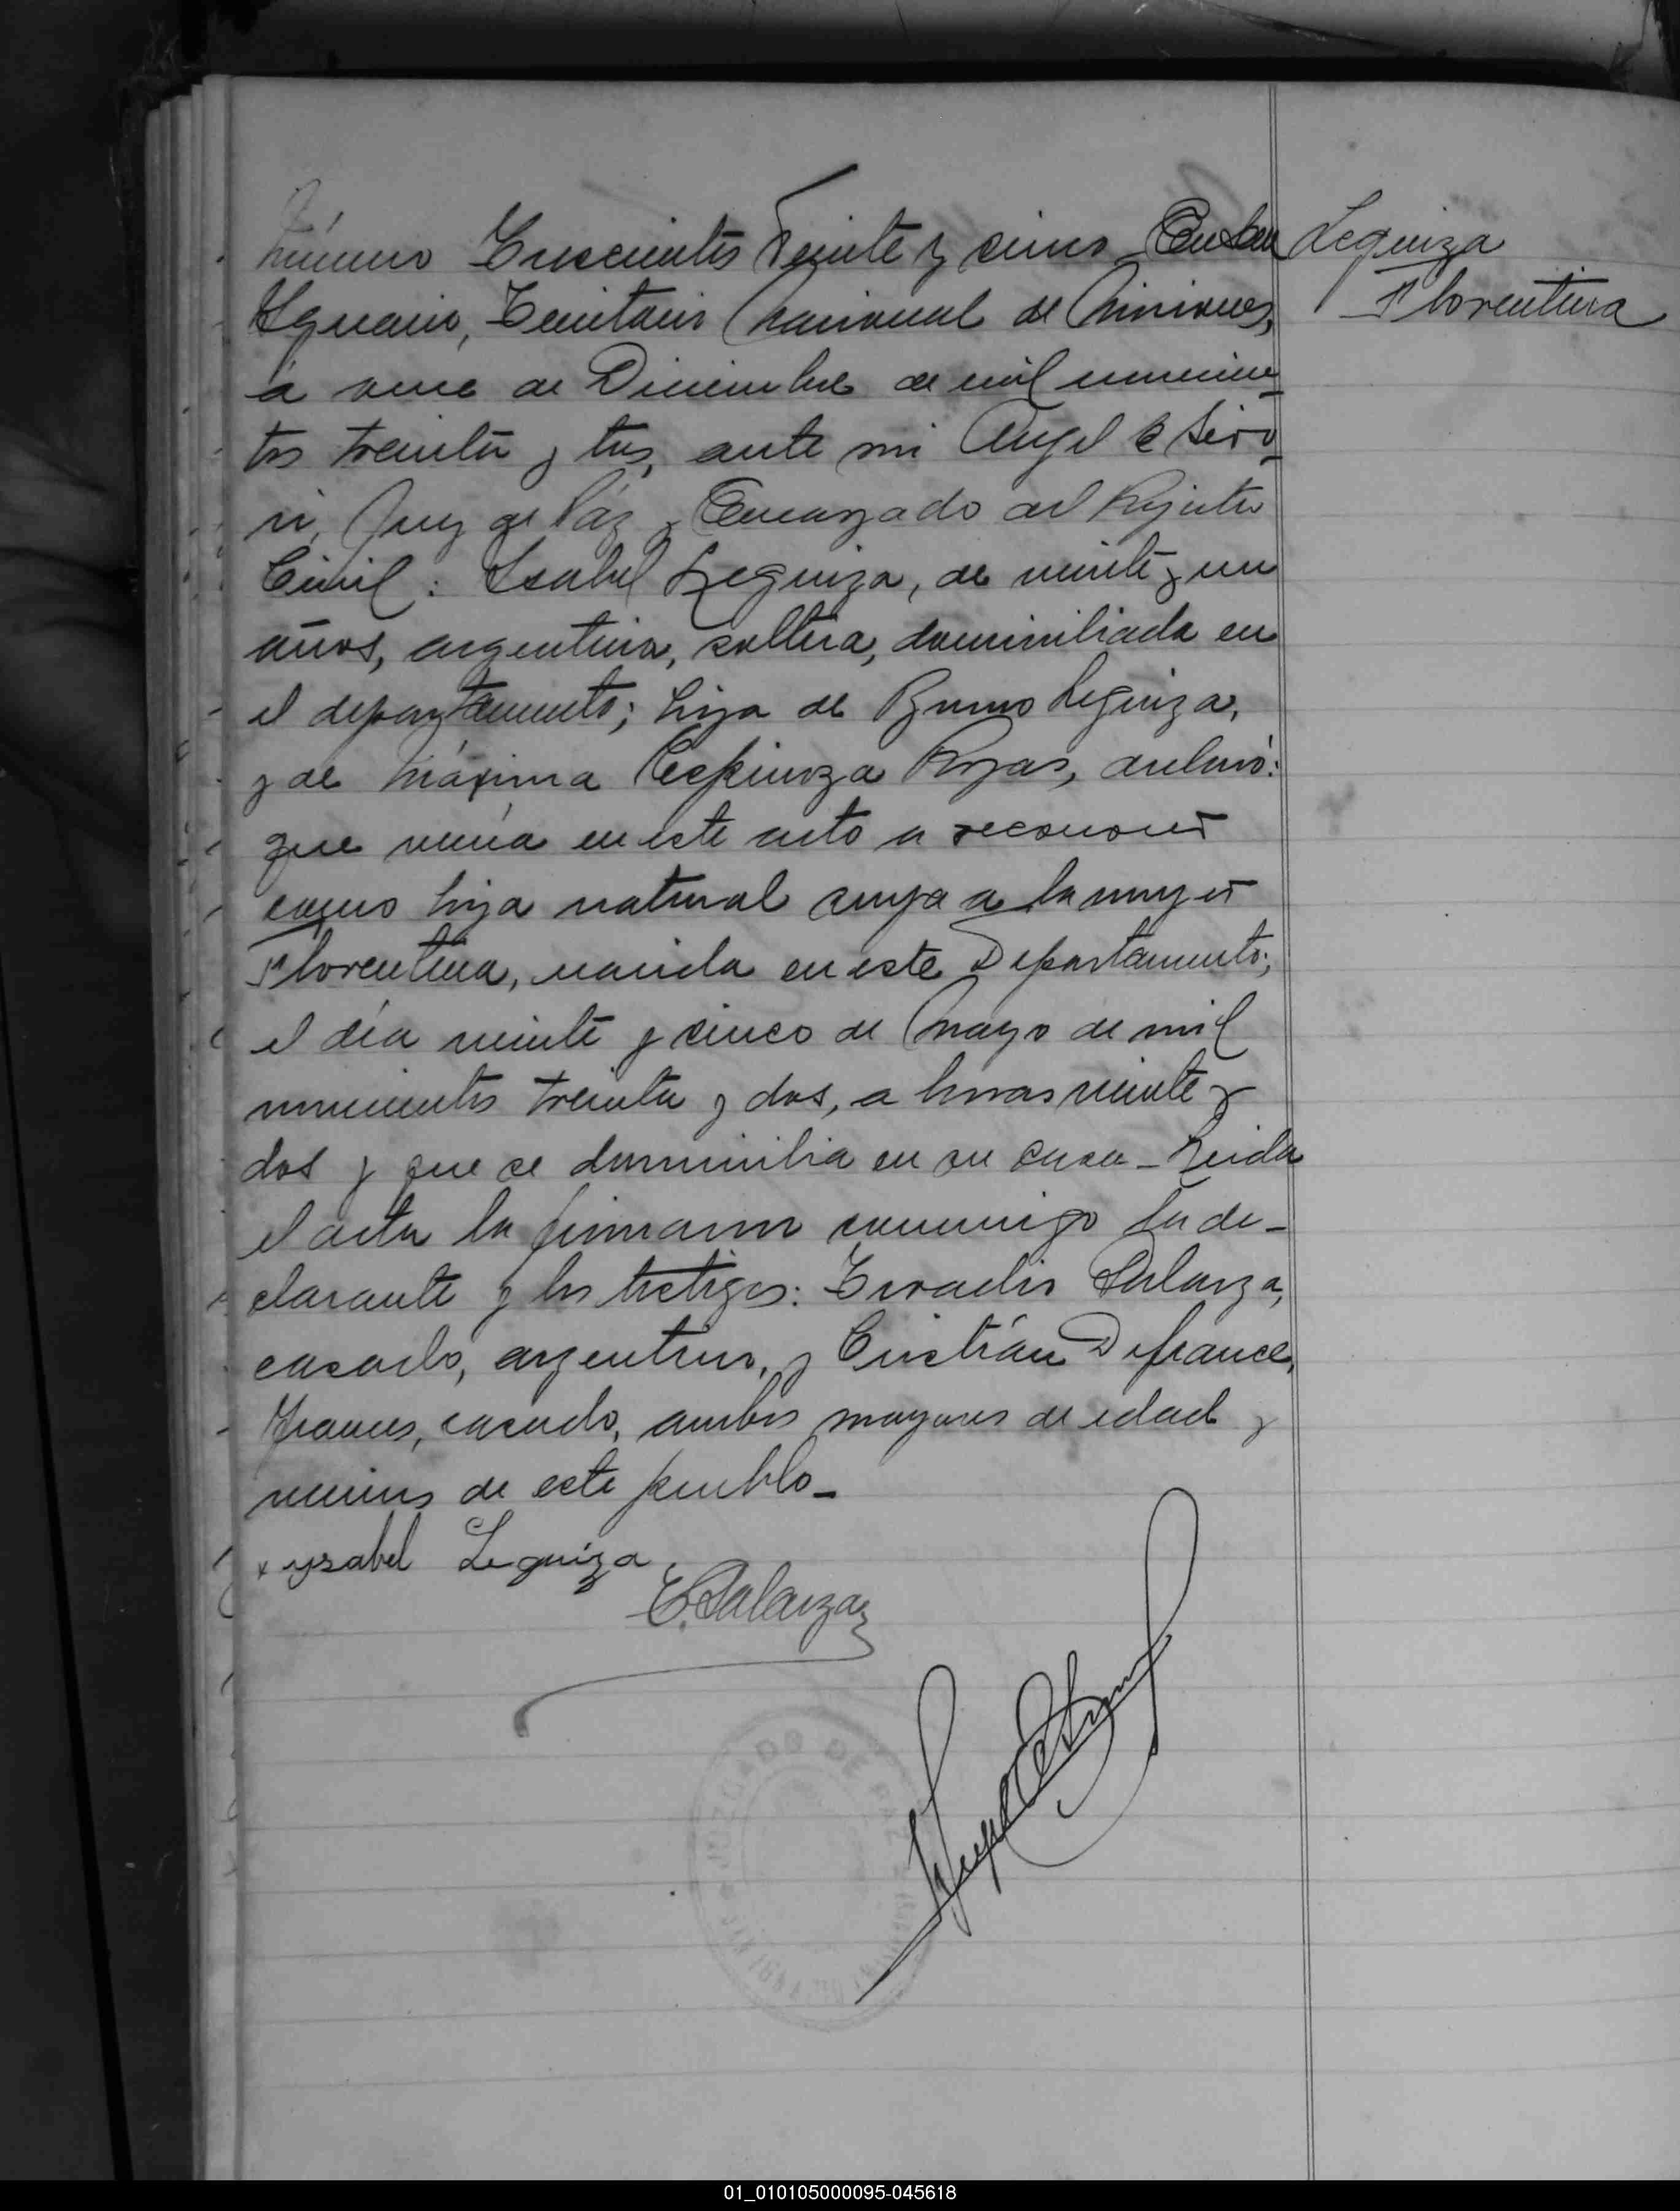 Número Trescientos Veinte y cinco En San
Ygnacio, Territorio Nacional de Misiones,
á once de Diciembre de mil novecien
tos treinta y tres, ante mi Angel C
Juez de Paz y Encargado del Registro
Civil: Isabel Leguiza, de veinte y un
años, argentina, soltera, domiciliada en
el departamento; hija de Bruno Leguiza,
y de Máxima Espinoza Rojas, declaró:
que venía en este acto a reconocer
como hija natural suya a la mujer
Florentina, nacida en este Departamento;
el día veinte y cinco de Mayo de mil
novecientos treinta y dos, a horas veinte y
dos y que se domicilia en su casa_Leida
el acta la firmaron conmigo la de-
clarante y los testigos: Eraclio Galarza,
casado, argentino, y Cristián Defrance,
frances, casado, ambos mayores de edad y
vecinos de este pueblo_
x ysabel Leguiza
E. Galarza
Leguiza
Florentina
JUZGADO DE PAZ
01_010105000095-045618